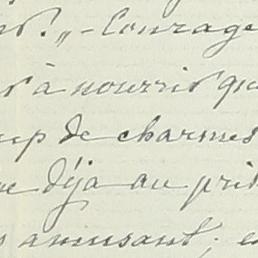 ." - Courage
à nourrir qu
up de charmes
déjà au prin
amusant, e